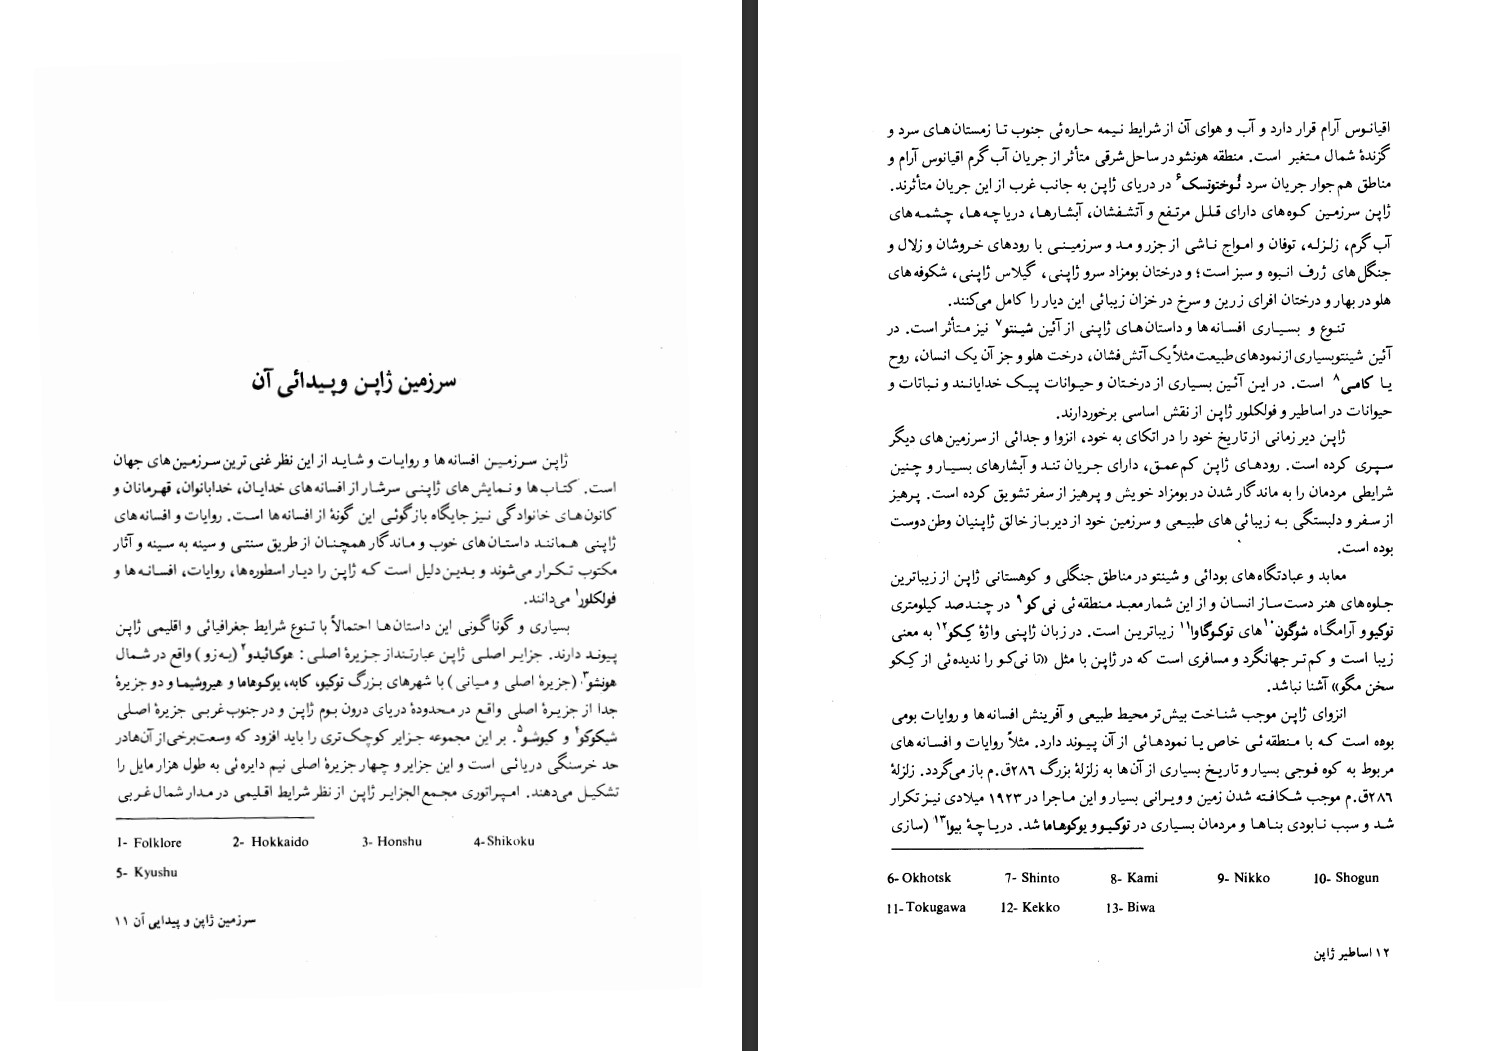 سرزمین ژاپن و پیدائی آن
ژاپن سرزمین افسانه ها و روایات و شاید از این نظر غنی ترین سرزمین های جهان
است. کتاب ها و نمایش های ژاپنی سرشار از افسانه های خدایان، خدابانوان، قهرمانان و
کانون های خانوادگی نیز جایگاه بازگوئی این گونهٔ از افسانه ها است. روایات و افسانه های
ژاپنی همانند داستان های خوب و ماندگار همچنان از طریق سنتی و سینه به سینه و آثار
مکتوب تکرار می‌شوند و بدین دلیل است که ژاپن را دیار اسطوره ها، روایات، افسانه ها و
فولکلور۱ می‌دانند.
بسیاری و گوناگونی این داستان ها احتمالاً با تنوع شرایط جغرافیائی و اقلیمی ژاپن
پیوند دارند. جزایر اصلی ژاپن عبارتند از جزیرهٔ اصلی: هوکائیدو۲ (یه زو) واقع در شمال
هونشو۳، (جزیرهٔ اصلی و میانی) با شهرهای بزرگ توکیو، کابه، یوکوهاما و هیروشیما و دو جزیرهٔ
جدا از جزیرهٔ اصلی واقع در محدودهٔ دریای درون بوم ژاپن و در جنوب غربی جزیرهٔ اصلی
شیکوکو۴ و کیوشو۵. بر این مجموعه جزایر کوچک تری را باید افزود که وسعت برخی از آن ها در
حد خرسنگی دریائی است و این جزایر و چهار جزیرهٔ اصلی نیم دایره ئی به طول هزار مایل را
تشکیل می‌دهند. امپراتوری مجمع الجزایر ژاپن از نظر شرایط اقلیمی در مدار شمال غربی
1- Folklore 2- Hokkaido 3- Honshu 4- Shikoku
5- Kyushu
سرزمین ژاپن و پیدایی آن ۱۱
اقیانوس آرام قرار دارد و آب و هوای آن از شرایط نیمه حاره ئی جنوب تا زمستان های سرد و
گزندهٔ شمال متغیر است. منطقه هونشو در ساحل شرقی متأثر از جریان آب گرم اقیانوس آرام و
مناطق هم جوار جریان سرد ئوختوتسک۶ در دریای ژاپن به جانب غرب از این جریان متأثرند.
ژاپن سرزمین کوه های دارای قلل مرتفع و آتشفشان، آبشارها، دریاچه ها، چشمه های
آب گرم، زلزله، توفان و امواج ناشی از جزر و مد و سرزمینی با رودهای خروشان و زلال و
جنگل های ژرف انبوه و سبز است؛ و درختان بومزاد سرو ژاپنی، گیلاس ژاپنی، شکوفه های
هلو در بهار و درختان افرای زرین و سرخ در خزان زیبائی این دیار را کامل می‌کنند.
تنوع و بسیاری افسانه ها و داستان های ژاپنی از آئین شینتو۷ نیز متأثر است. در
آئین شینتو بسیاری از نمودهای طبیعت مثلاً یک آتش فشان، درخت هلو و جز آن یک انسان، روح
یا کامی۸ است. در این آئین بسیاری از درختان و حیوانات پیک خدایانند و نباتات و
حیوانات در اساطیر و فولکلور ژاپن از نقش اساسی برخوردارند.
ژاپن دیر زمانی از تاریخ خود را در اتکای به خود، انزوا و جدائی از سرزمین های دیگر
سپری کرده است. رودهای ژاپن کم عمق، دارای جریان تند و آبشارهای بسیار و چنین
شرایطی مردمان را به ماندگار شدن در بومزاد خویش و پرهیز از سفر تشویق کرده است. پرهیز
از سفر و دلبستگی به زیبائی های طبیعی و سرزمین خود از دیرباز خالق ژاپنیان وطن دوست
بوده است.
معابد و عبادتگاه های بودائی و شینتو در مناطق جنگلی و کوهستانی ژاپن از زیباترین
جلوه های هنر دست ساز انسان و از این شمار معبد منطقه ئی نی کو۹ در چند صد کیلومتری
توکیو و آرامگاه شوگون۱۰ های توکوگاوا۱۱ زیباترین است. در زبان ژاپنی واژهٔ کِکو۱۲ به معنی
زیبا است و کم تر جهانگرد و مسافری است که در ژاپن با مثل «تا نی کو را ندیده ئی از کِکو
سخن مگو» آشنا نباشد.
انزوای ژاپن موجب شناخت بیش تر محیط طبیعی و آفرینش افسانه ها و روایات بومی
بوده است که با منطقه ئی خاص یا نمودهائی از آن پیوند دارد. مثلاً روایات و افسانه های
مربوط به کوه فوجی بسیار و تاریخ بسیاری از آن ها به زلزلهٔ بزرگ ۲۸۶ق.م باز می‌گردد. زلزلهٔ
۲۸۶ق.م موجب شکافته شدن زمین و ویرانی بسیار و این ماجرا در ۱۹۲۳ میلادی نیز تکرار
شد و سبب نابودی بناها و مردمان بسیاری در توکیو و یوکوهاما شد. دریاچهٔ بیوا۱۳ (سازی
6- Okhotsk 7- Shinto 8- Kami 9- Nikko 10- Shogun
11- Tokugawa 12- Kekko 13- Biwa
۱۲ اساطیر ژاپن